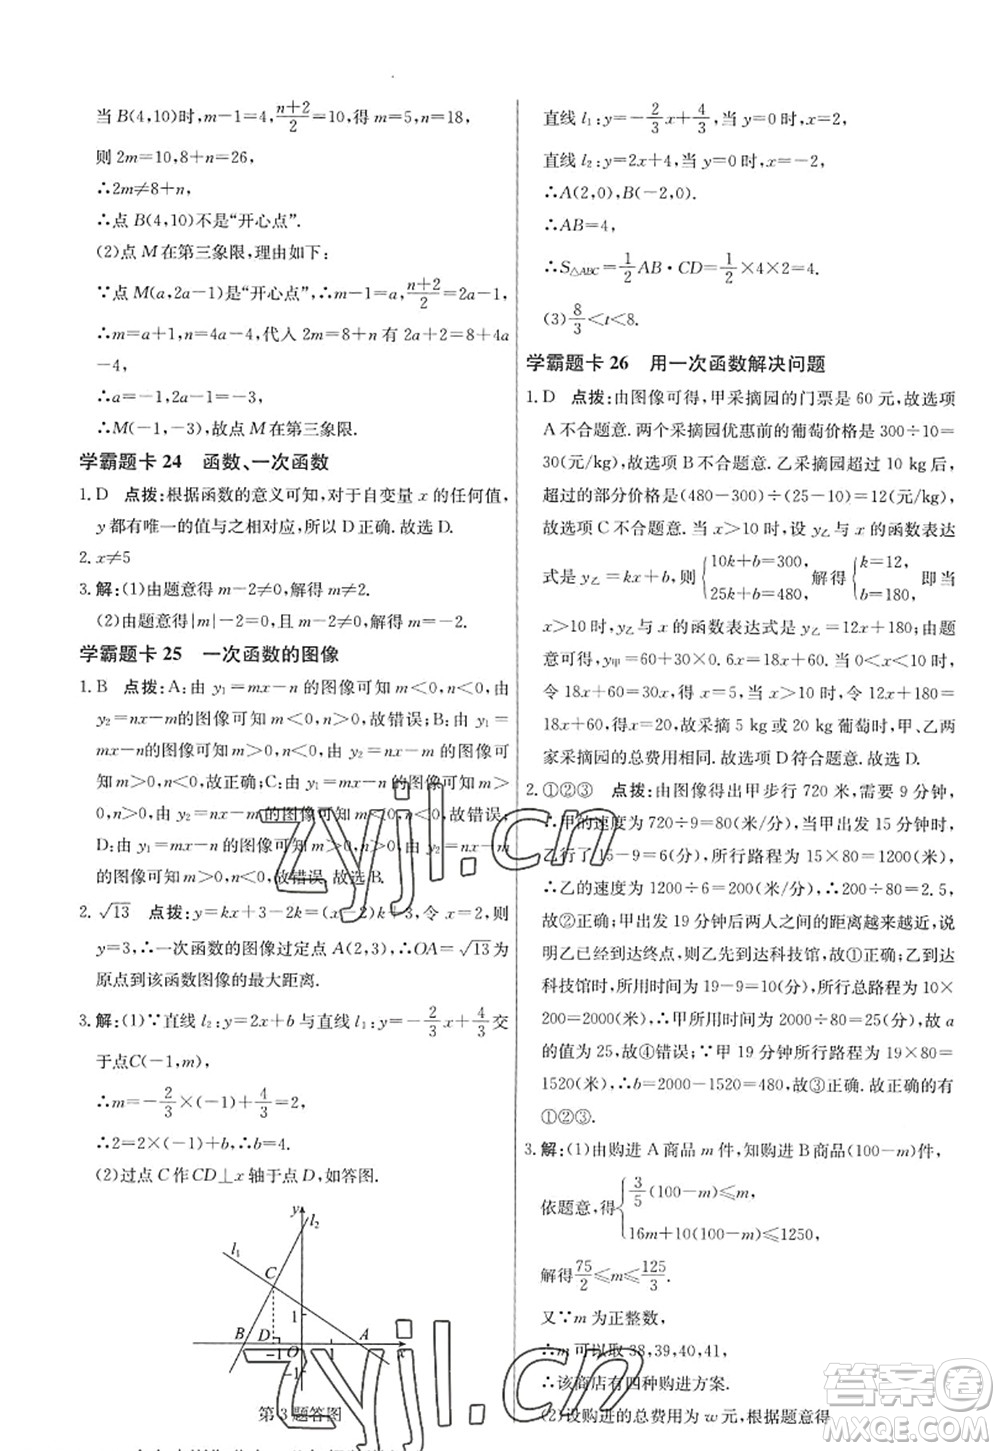 当 B(4,10)时,m-1=4,(n+2)/2=10,得 m=5,n=18,
则 2m=10,8+n=26,
∴2m≠8+n,
∴点 B(4,10)不是“开心点”.
(2)点 M 在第三象限,理由如下:
∵点 M(a,2a-1)是“开心点”,∴m-1=a,(n+2)/2=2a-1,
∴m=a+1,n=4a-4,代入 2m=8+n 有 2a+2=8+4a
-4,
∴a=-1,∴2a-1=-3,
∴M(-1,-3),故点 M 在第三象限.
学霸题卡 24 函数、一次函数
1. D 点拨:根据函数的意义可知,对于自变量 x 的任何值,
y 都有唯一的值与之相对应,所以 D 正确.故选 D.
2. x≠5
3. 解:(1)由题意得 m-2≠0,解得 m≠2.
(2)由题意得|m|-2=0,且 m-2≠0,解得 m=-2.
学霸题卡 25 一次函数的图像
1. B 点拨:A:由 y₁=mx-n 的图像可知 m<0,n<0,由
y₂=nx-m 的图像可知 m<0,n>0,故错误;B:由 y₁=
mx-n的图像可知 m>0,n<0,由 y₂=nx-m 的图像可
知 m>0,n<0,故正确;C:由 y₁=mx-n 的图像可知
m>0,n>0,由 y₂=nx-m 的图像可知 m<0,n<0,故错误;
D:由 y₁=mx-n 的图像可知 m>0,n>0,由 y₂=nx-m 的
图像可知 m>0,n<0,故错误.故选 B.
2. √13 点拨:y=kx+3-2k=(x-2)k+3,令 x=2,则
y=3,∴一次函数的图像过定点 A(2,3),∴OA=√13为
原点到该函数图像的最大距离.
3. 解:(1)∵直线 l₂:y=2x+b 与直线 l₁:y=-2/3x+4/3交
于点C(-1,m),
∴m=-2/3×(-1)+4/3=2,
∴2=2×(-1)+b,∴b=4.
(2)过点 C 作 CD⊥x 轴于点 D,如答图.
y
l₂
l₁
C
1
B D A
-1 O 1 x
-1
第 3 题答图
直线 l₁:y=-2/3x+4/3,当 y=0时,x=2,
直线 l₂:y=2x+4,当 y=0时,x=-2,
∴A(2,0),B(-2,0).
∴AB=4,
∴S△ABC=1/2AB·CD=1/2×4×2=4.
(3)8/3<t<8.
学霸题卡 26 用一次函数解决问题
1. D 点拨:由图像可得,甲采摘园的门票是 60 元,故选项
A 不合题意.两个采摘园优惠前的葡萄价格是 300÷10=
30(元/kg),故选项 B 不合题意.乙采摘园优惠后,
超过的部分价格是(480-300)÷(25-10)=12(元/kg),
故选项 C 不合题意.当 x>10 时,设 y乙 与 x 的函数表达
式是 y乙=kx+b,则{10k+b=300, 25k+b=480, 解得{k=12, b=180, 即当
x>10 时,y乙与 x 的函数表达式是 y乙=12x+180,由题
意可得,y甲=60+30×0.6x=18x+60,当 0<x<10 时,
令 18x+60=30x,得 x=5,当 x>10 时,令 12x+180=
18x+60,得 x=20,故采摘 5 kg或 20 kg 葡萄时,甲、乙两
家采摘园的总费用相同.故选项 D 符合题意.故选 D.
2. ①②③ 点拨:由图像得出甲步行 720 米,需要 9 分钟,
∴甲的速度为 720÷9=80(米/分),当甲出发 15 分钟时,
乙行了 15-9=6(分),所行路程为 15×80=1200(米),
∴乙的速度为 1200÷6=200(米/分),200÷80=2.5,
故②正确;甲出发 19 分钟后两人之间的距离越来越近,说
明乙已到达终点,则乙先到达科技馆,故①正确;乙到达
科技馆时,所用时间为 19-9=10(分),所行总路程为 10×
200=2000(米),∴甲所用时间为 2000÷80=25(分),故 a
的值为 25,故④错误;∵甲 19 分钟所行路程为 19×80=
1520(米),∴b=2000-1520=480,故③正确.故正确的有
①②③.
3. 解:(1)由购进 A 商品 m 件,知购进 B商品(100-m)件,
依题意,得{3/5(100-m)≤m, 16m+10(100-m)≤1250,
解得75/2≤m≤125/3.
又∵m 为正整数,
∴m 可以取 38,39,40,41,
∴该商店有四种购进方案.
(2)设购进的总费用为 w 元,根据题意得
zyjl.cn
zyjl.cn
答案圈
MXQE.COM